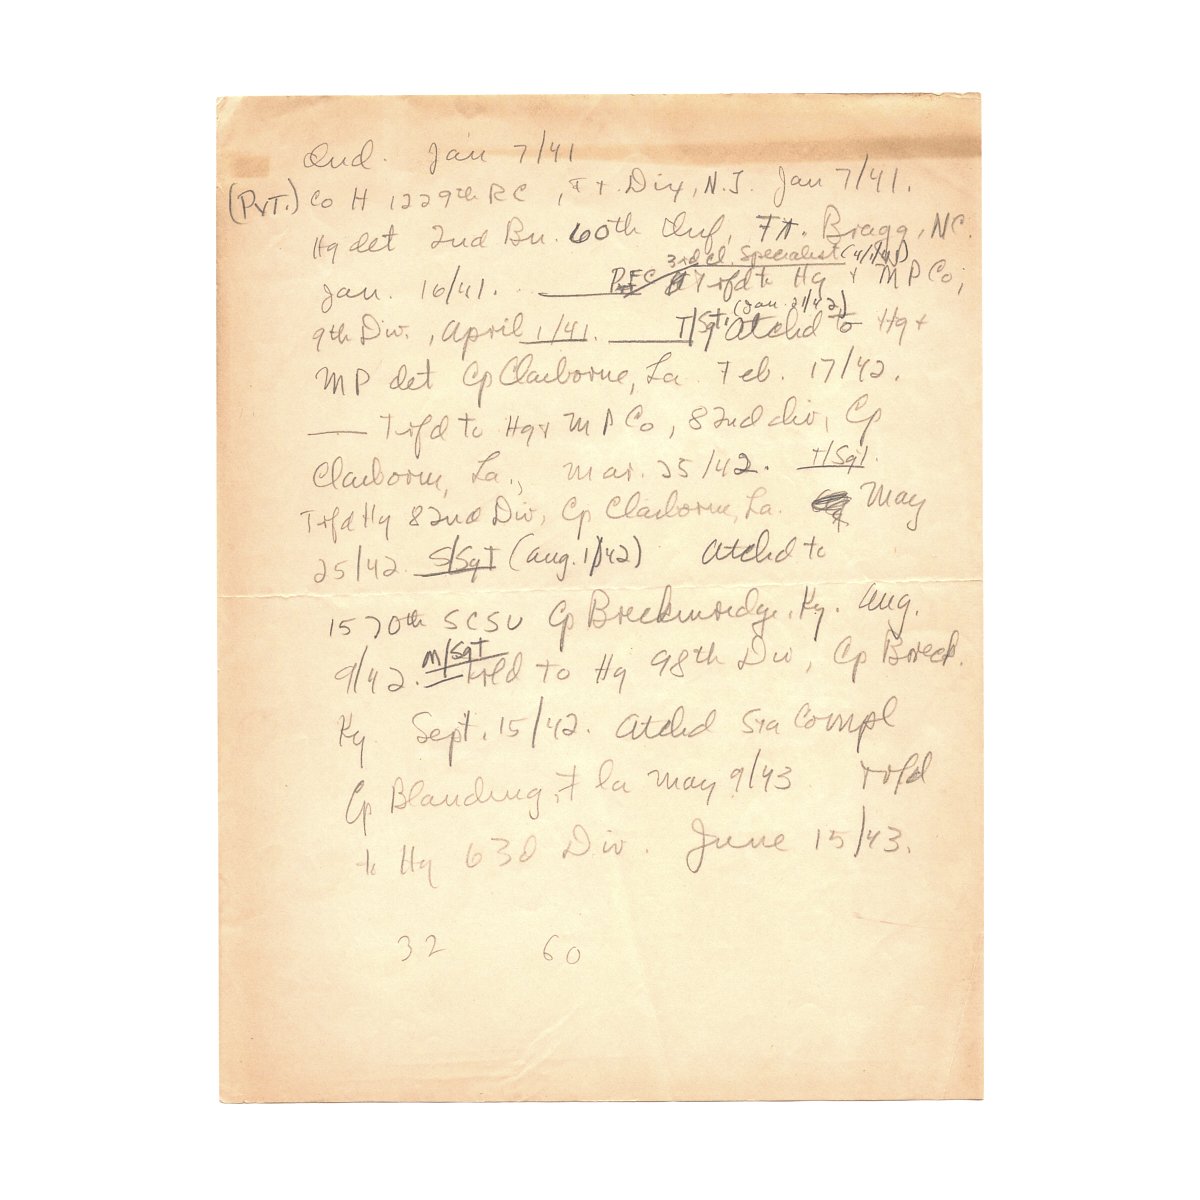 Ind. Jan 7/41
(Pvt.) Co H 1229th RC, Ft. Dix, N.J. Jan 7/41.
Hq det 2nd Bn. 60th Inf, Ft. Bragg, NC.
3rd cl. Specialist (4/1/41)
Jan. 16/41. PFC Trsfd to Hq + MP Co,
(Jan. 21/42)
9th Div., April 1/41. T/Sgt, atchd to Hq +
MP det Cp Claiborne, La Feb. 17/42.
Trsfd to Hq + MP Co, 82nd div, Cp
Claiborne, La., Mar. 25/42. T/Sgt.
Trsfd Hq 82nd Div, Cp Claiborne, La. May
25/42. S/Sgt (Aug. 1/42) atchd to
1570th SCSU Cp Breckinridge, Ky. Aug.
9/42. M/Sgt trsfd to Hq 98th Div, Cp Breck.
Ky. Sept. 15/42. atchd Sta Compl
Cp Blanding, Fla May 9/43 trsfd
to Hq 63d Div. June 15/43.
32 60